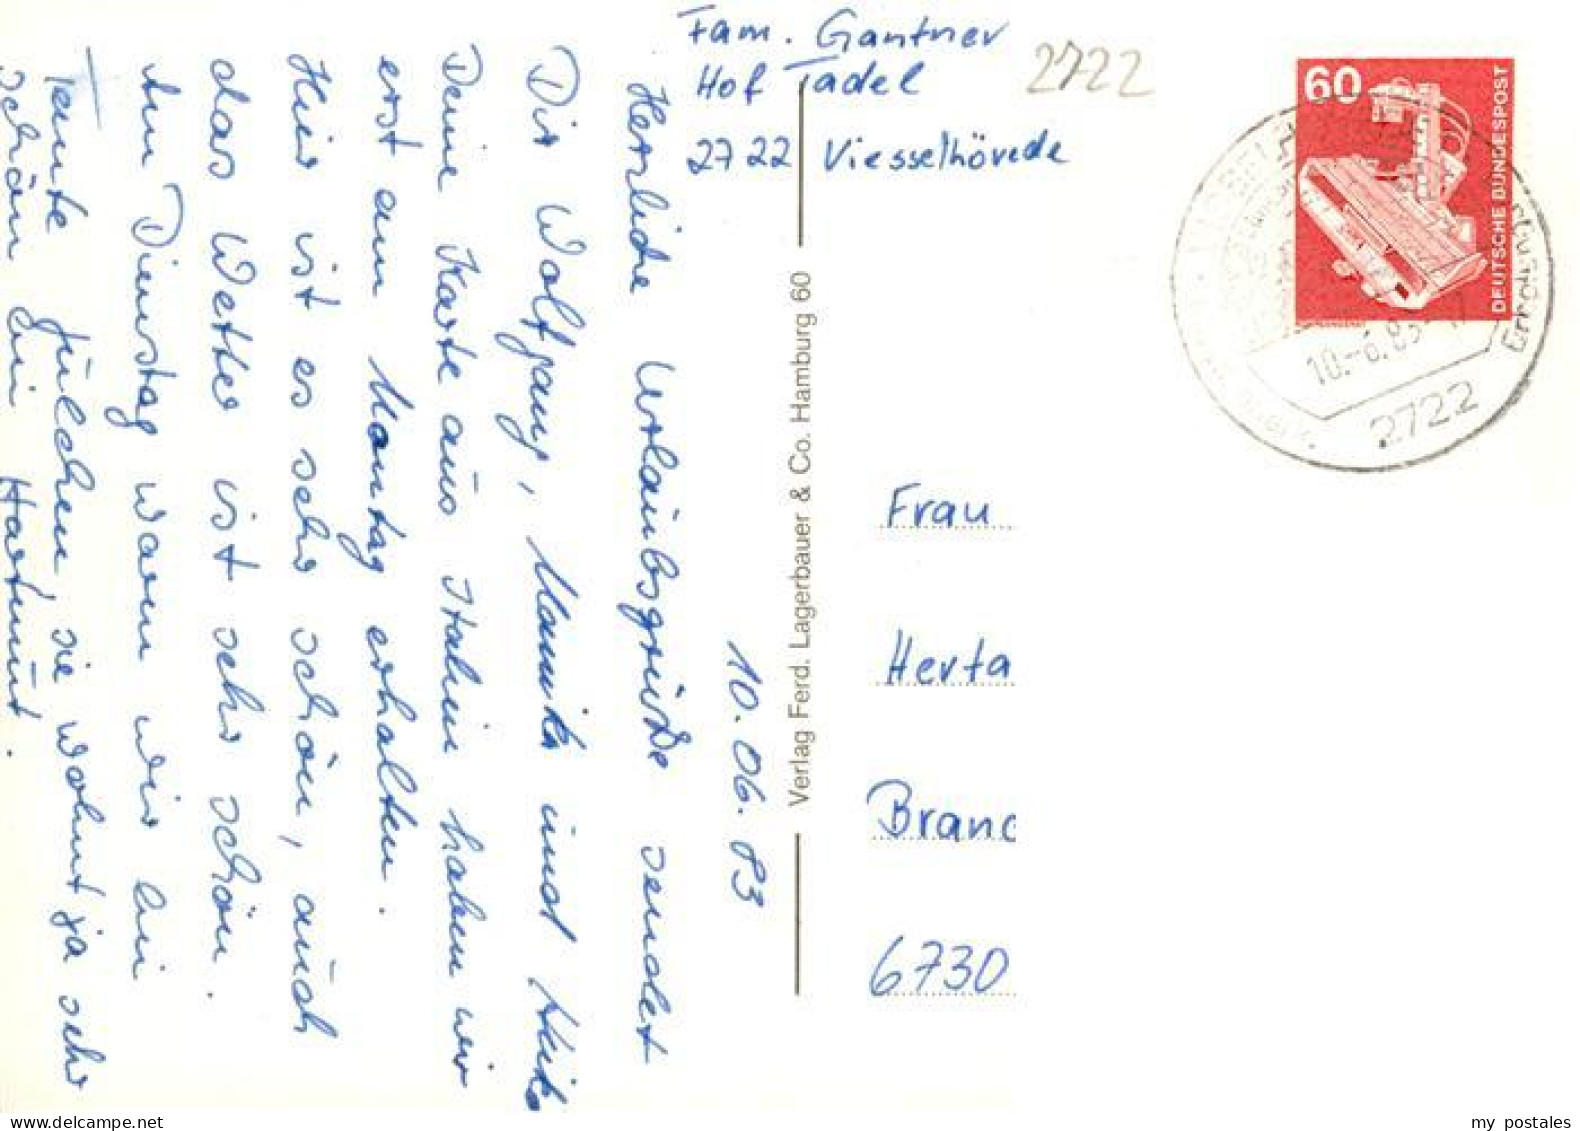 Fam. Gantner
Hof Tadel
2722 Viesselhövede
2722
60
DEUTSCHE BUNDESPOST
10.-6.83
2722
Erholung
10.06.83
Herzliche Urlaubsgrüße sendet
Dir Wolfgang, Monika und Heiko
Deine Karte aus Italien haben wir
erst am Montag erhalten.
Hier ist es sehr schön, auch
das Wetter ist sehr schön.
Am Dienstag waren wir bei
Tante Julchen, sie wohnt ja sehr
schön bei Hartmut.
Verlag Ferd. Lagerbauer & Co. Hamburg 60
Frau
Herta
Branc
6730
my postales